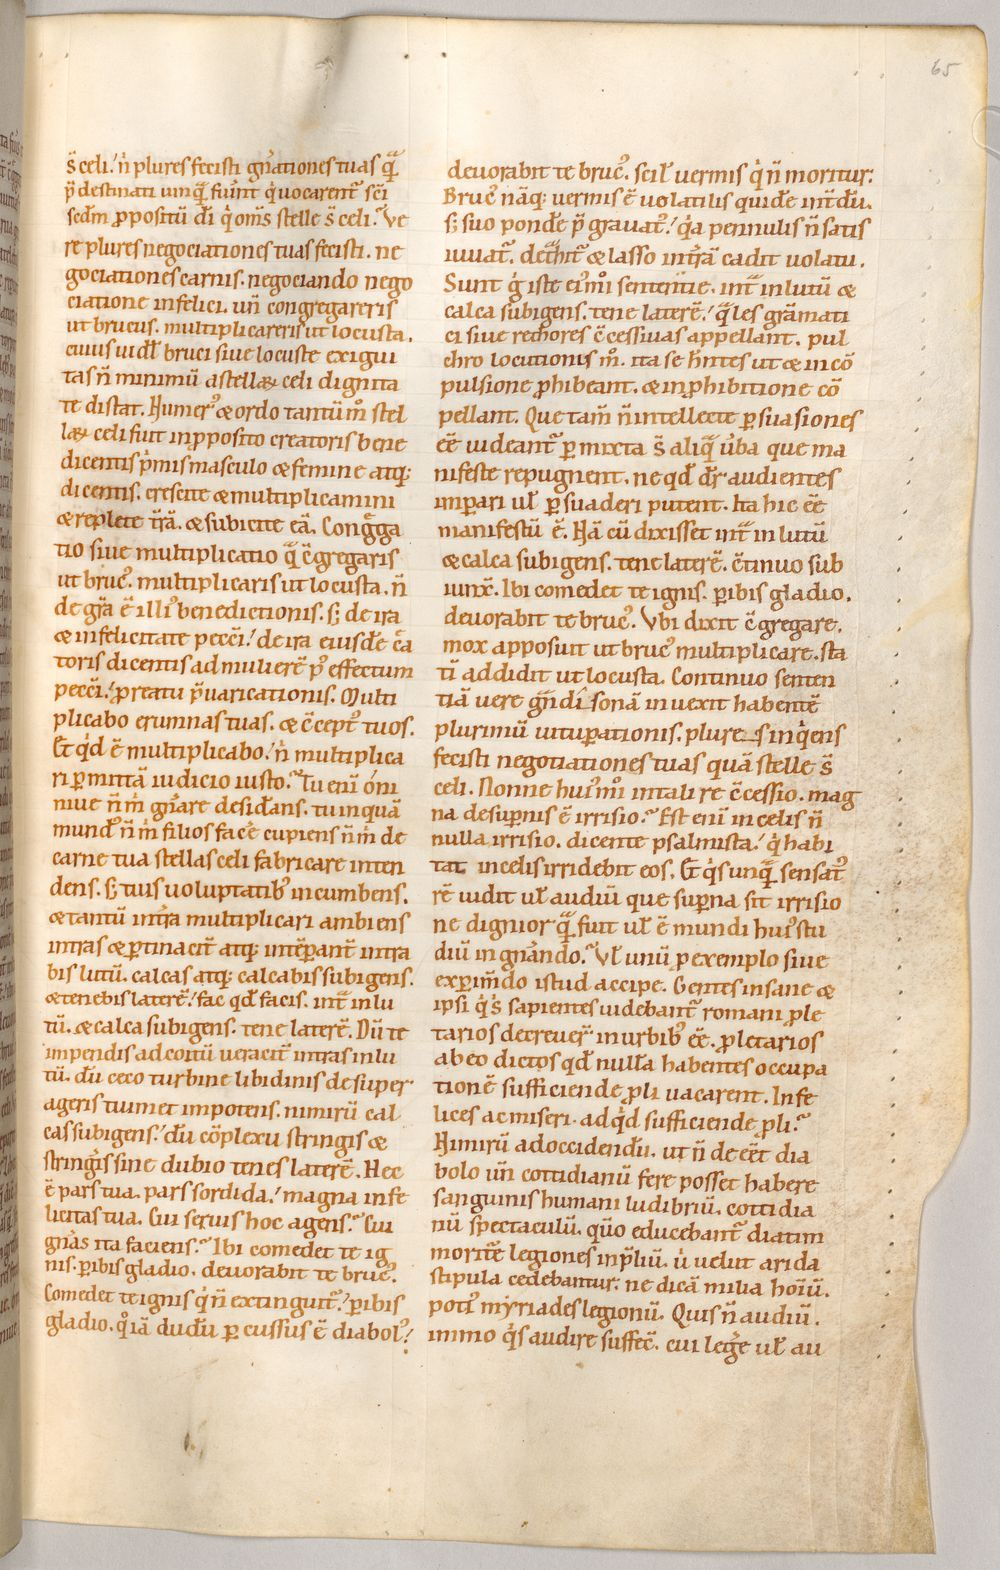 65
s̄ celi. n̄ plures fecisti gn̄ationes tuas q̄
p̄destinati umq̄ fuīnt q̇ uocarent̄ sc̄i
scd̄m ꝓpositū dī q̇ om̄s stelle s̄ celi. Ve
re plures negociationes tuas fecisti. ne
gociationes carnis. negociando nego
ciatione infelici. uñ congregareris
ut brucus. multiplicareris ut locusta.
cuius uidł bruci siue locuste exigui
tas ñ minimū a stellaꝝ celi dignita
te distat. Numerꝰ & ordo tantūm̊ stel
laꝝ celi fuit in ꝓposito creatoris bene
dicentis p̄mis masculo & femine atq;
dicentis. crescite & multiplicamini
& replete t̄rā. & subicite eā. Cong̅ga
tio siue multiplicatio q̄ c̄gregaris
ut brucꝰ. multiplicaris ut locusta. ñ
de gr̄a ē illiꝰ benedictionis. s; de ira
& infelicitate pecc̄i. de ira eiusdē c̄a
toris dicentis ad mulierē pꝰ effectum
pecc̄i. ꝓ reatu p̄uaricationis. Multi
plicabo erumnas tuas. & c̄ceptꝰ tuos.
Et qͥd ē multiplicabo. n̄ multiplica
ri ꝑmittā iudicio iusto. Tu eni om̄
niue ñ m̊ gn̄are desid̄ans. tu inquā
mundꝰ ñ m̊ filios facē cupiens ñ m̊ de
carne tua stellas celi fabricare inten
dens. s; tuis uoluptatibꝰ incumbens.
& tantū int̄ra multiplicari ambiens
intras & ꝑtinacit̄ atq; intēꝑant̄ intra
bis lutū. calcas atq; calcabis subigens.
& tenebis laterē. fac qd̄ facis. int̄ in lu
tū. & calca subigens. tene laterē. Dū te
impendis ad coitū ueracit̄ intras in lu
tū. dū ceco turbine libidinis desuper
ageris tuimet impotens. nimirū cal
cas subigens. dū cōplexu stringis &
stringͥs sine dubio tenes laterē. Hec
ē pars tua. pars sordida. magna infe
licitas tua. Cui seruis hoc agens. Cui
gn̄as ita faciens. Ibi comedet te ig
nis. ꝑibis gladio. deuorabit te brucꝰ.
Comedet te ignis q̇ ñ extinguit̄. ꝑibis
gladio. qͦ iā dudū ꝑcussus ē diabolꝰ.
deuorabit te brucꝰ. scił uermis q̇ ñ moritur.
Brucꝰ nāq; uermis ē uolatilis quidē int̄dū.
s; suo pondē p̄grauatꝰ. qͥa pennulis ñ satis
iuuat̄. det̄hit̄ & lasso int̄rā cadit uolatu.
Sunt g̊ iste ei̊mi̊ sententie. int̄ in lutū &
calca subigens. tene laterē. q̄les grāmati
ci siue rethores c̄cessiuas appellant. pul
chro locutionis m̊. ita se hñtes ut & in cō
pulsione ꝓhibeant. & in ꝓhibitione cō
pellant. Que tam̄ ñ intellecte ꝑsuasiones
ēē uideant̄ ꝑmixta s̄ aliq̄ ūba que ma
nifeste repugnent. ne qd̄ dr̄ audientes
imꝑari uł ꝑsuaderi putent. Ita hic ēē
manifestū ē. Nā cū dixisset int̄ in lutū
& calca subigens. tene laterē. c̄tinuo sub
iunx̄. Ibi comedet te ignis. ꝑibis gladio.
deuorabit te brucꝰ. Vbi dixit c̄gregare.
mox apposuit ut brucꝰ multiplicare. sta
tī addidit ut locusta. Continuo senten
tiā uere g̅ndisonā inuexit habentē
plurimū uituꝑationis. plures inqͥens
fecisti negotiationes tuas quā stelle s̄
celi. Nonne huiꝰmi̊ in tali re c̄cessio. mag
na desuꝑnis ē irrisio. Est eni in celis ñ
nulla irrisio. dicente psalmista. q̇ habi
tat in celis irridebit eos. Et qͥs unq̄ sensatꝰ
rē uidit uł audiū que suꝑna sit irrisio
ne dignior q̄ fuit uł ē mundi huiꝰ stu
diū in gn̄ando. Vł unū ꝑ exemplo siue
exꝑim̄do istud accipe. Gentes insane &
ipsi qͥs sapientes uidebant̄ romani ꝓle
tarios decreuer̄ in urbibꝰ ēē. ꝓletarios
ab eo dictos qd̄ nulła habentes occupa
tionē sufficiende ꝓli uacarent. Infe
lices ac miseri. ad qͥd sufficiende ꝓli.
Nimirū ad occidendū. ut ñ deēēt dia
bolo uñ cottidianū fere posset habere
sanguinis humani ludibriū. cottidia
nū spectaculū. quo educebant̄ diatim
moritē legiones in p̄liū. u̇ uelut arida
stipula cedebantur. ne dicā milia hoīū.
potiꝰ myriades legionū. Quis ñ audiū.
immo qͥs audire suffec̄. cui legēe uł au